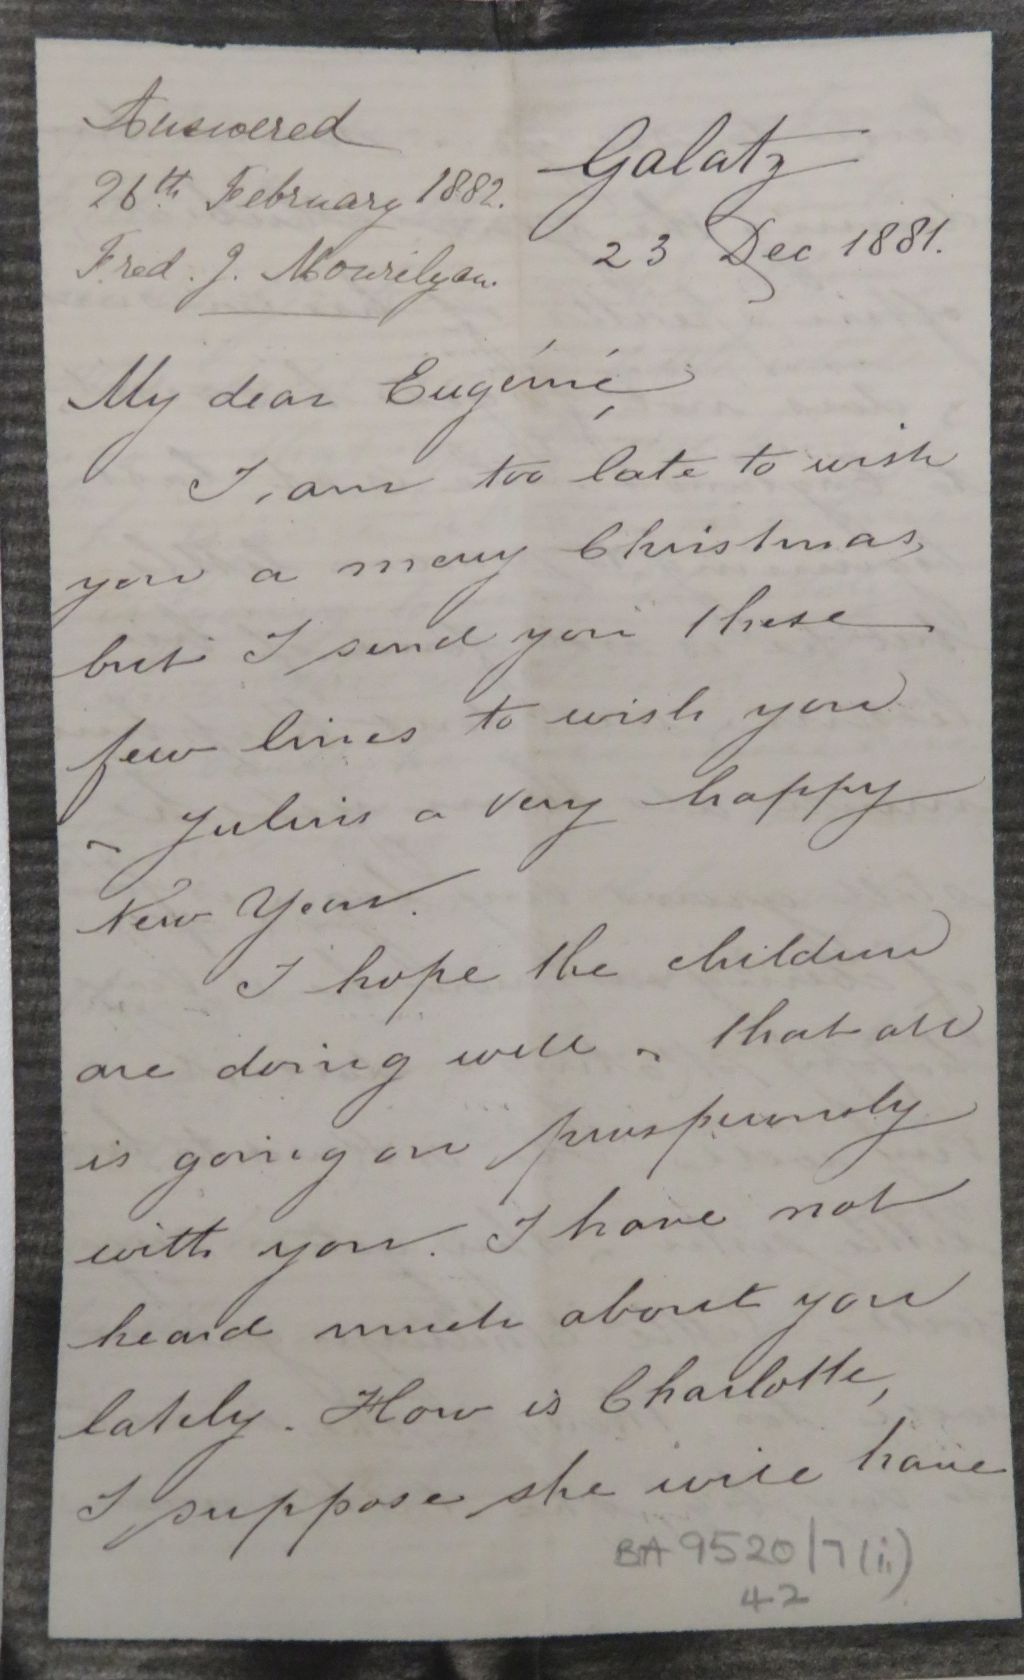 Answered
26th February 1882.
Fred. J. Mourilyan.
Galatz
23 Dec 1881.
My dear Eugénié,
I am too late to wish
you a merry Christmas,
but I send you these
few lines to wish you
& Julius a very happy
New Year.
I hope the children
are doing well & that all
is going on prosperously
with you. I have not
heard much about you
lately. How is Charlotte,
I suppose she will have
BA 9520/7(ii)
42